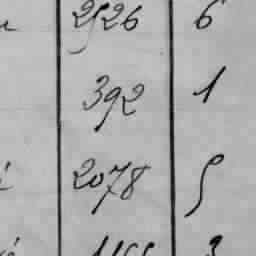 2526 6
392 1
2078 5